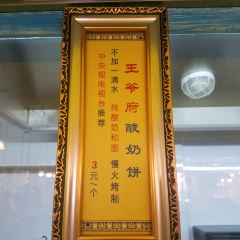 王爷府酸奶饼
不加一滴水 纯酸奶和面 慢火烤制
中央视电视台推荐
3元/个